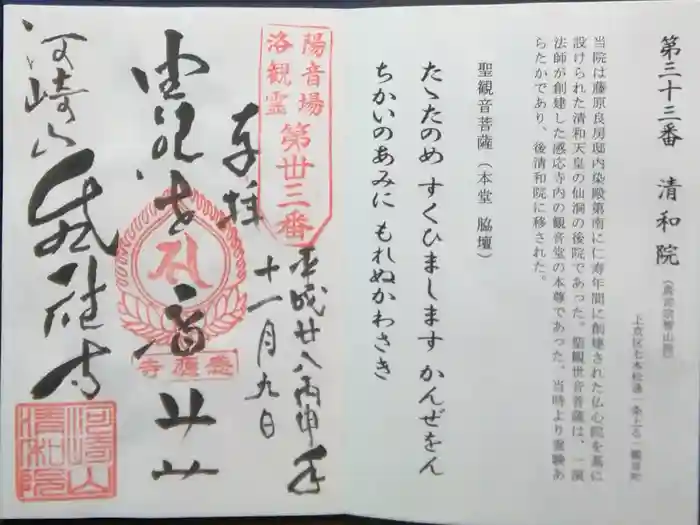 第三十三番　清和院（真言宗智山派）
上京区七本松通一条上る一観音町
当院は藤原良房邸内染殿第南に仁寿年間に創建された仏心院を基に
設けられた清和天皇の仙洞の後院であった。聖観世音菩薩は、一演
法師が創建した感応寺内の観音堂の本尊であった。当時より霊験あ
らたかであり、後清和院に移された。
聖観音菩薩（本堂　脇壇）
たゝたのめ　すくひまします　かんぜをん
ちかいのあみに　もれぬかわさき
洛陽
観音
霊場
第卅三番
奉拝
平成廿八丙申年
十一月九日
感應寺
河崎山
感應寺
河崎山
清和院